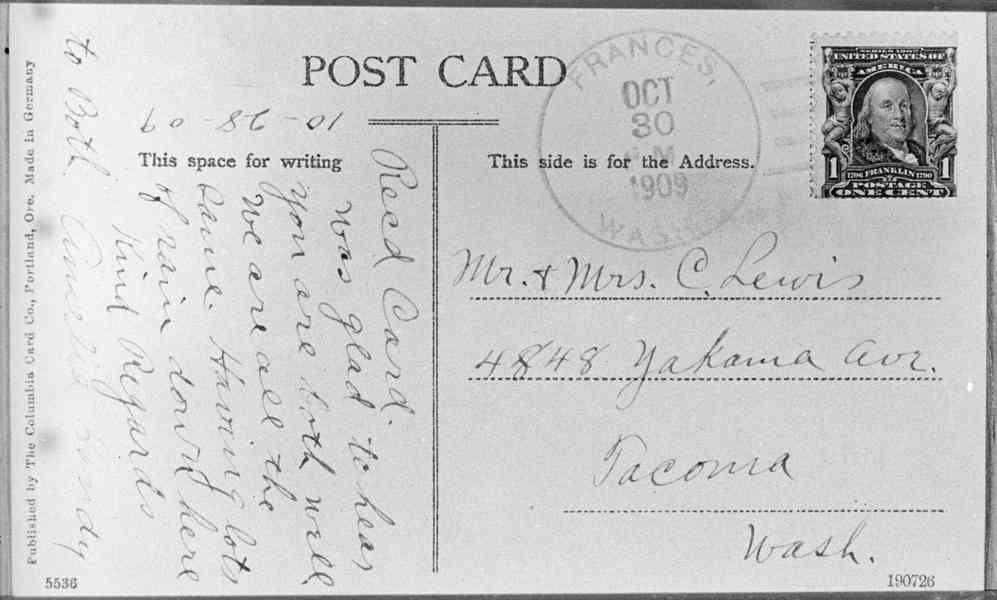 POST CARD
10-28-09
This space for writing
Recd Card.
Was glad to hear
you are both well
We are all the
same. Having lots
of rain down here
Kind Regards
to Both.
This side is for the Address.
FRANCES,
OCT
30
M
1909
WASH.
SERIES 1902
UNITED STATES OF
AMERICA
1706 FRANKLIN 1790
1 1
POSTAGE
ONE CENT
Mr. & Mrs. C. Lewis
4848 Yakama Ave.
Tacoma
Wash.
Published by The Columbia Card Co., Portland, Ore. Made in Germany
5536
190726